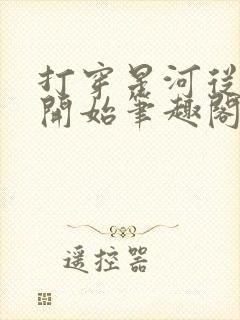 打穿星河從
開始筆趣閣
遥控器